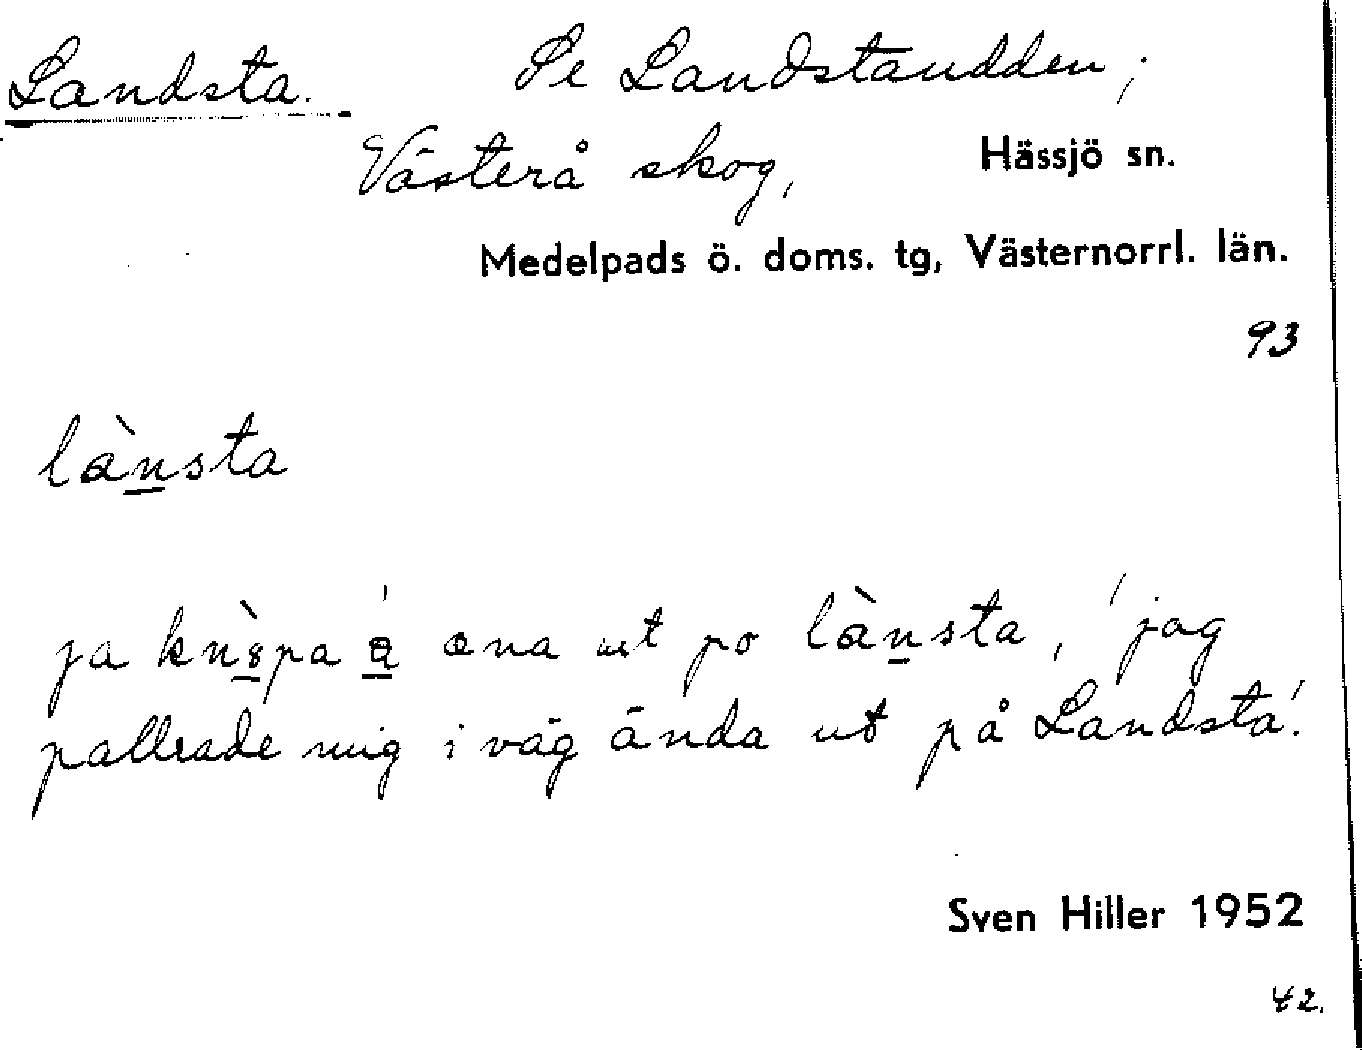 Landsta. Se Landstaudden;
Västerå skog, Hässjö sn.
Medelpads ö. doms. tg, Västernorrl. län.
93
làn̲sta
ja kn a æna ut po làn̲sta, 'jag
pallrade mig i väg ända ut på Landsta'.
Sven Hiller 1952
42.